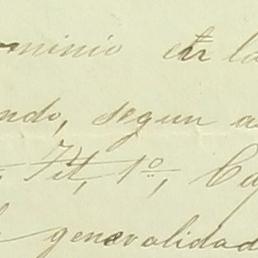 ominio en la
ndo, segun a
Tit, 1º, Ca
generalidad